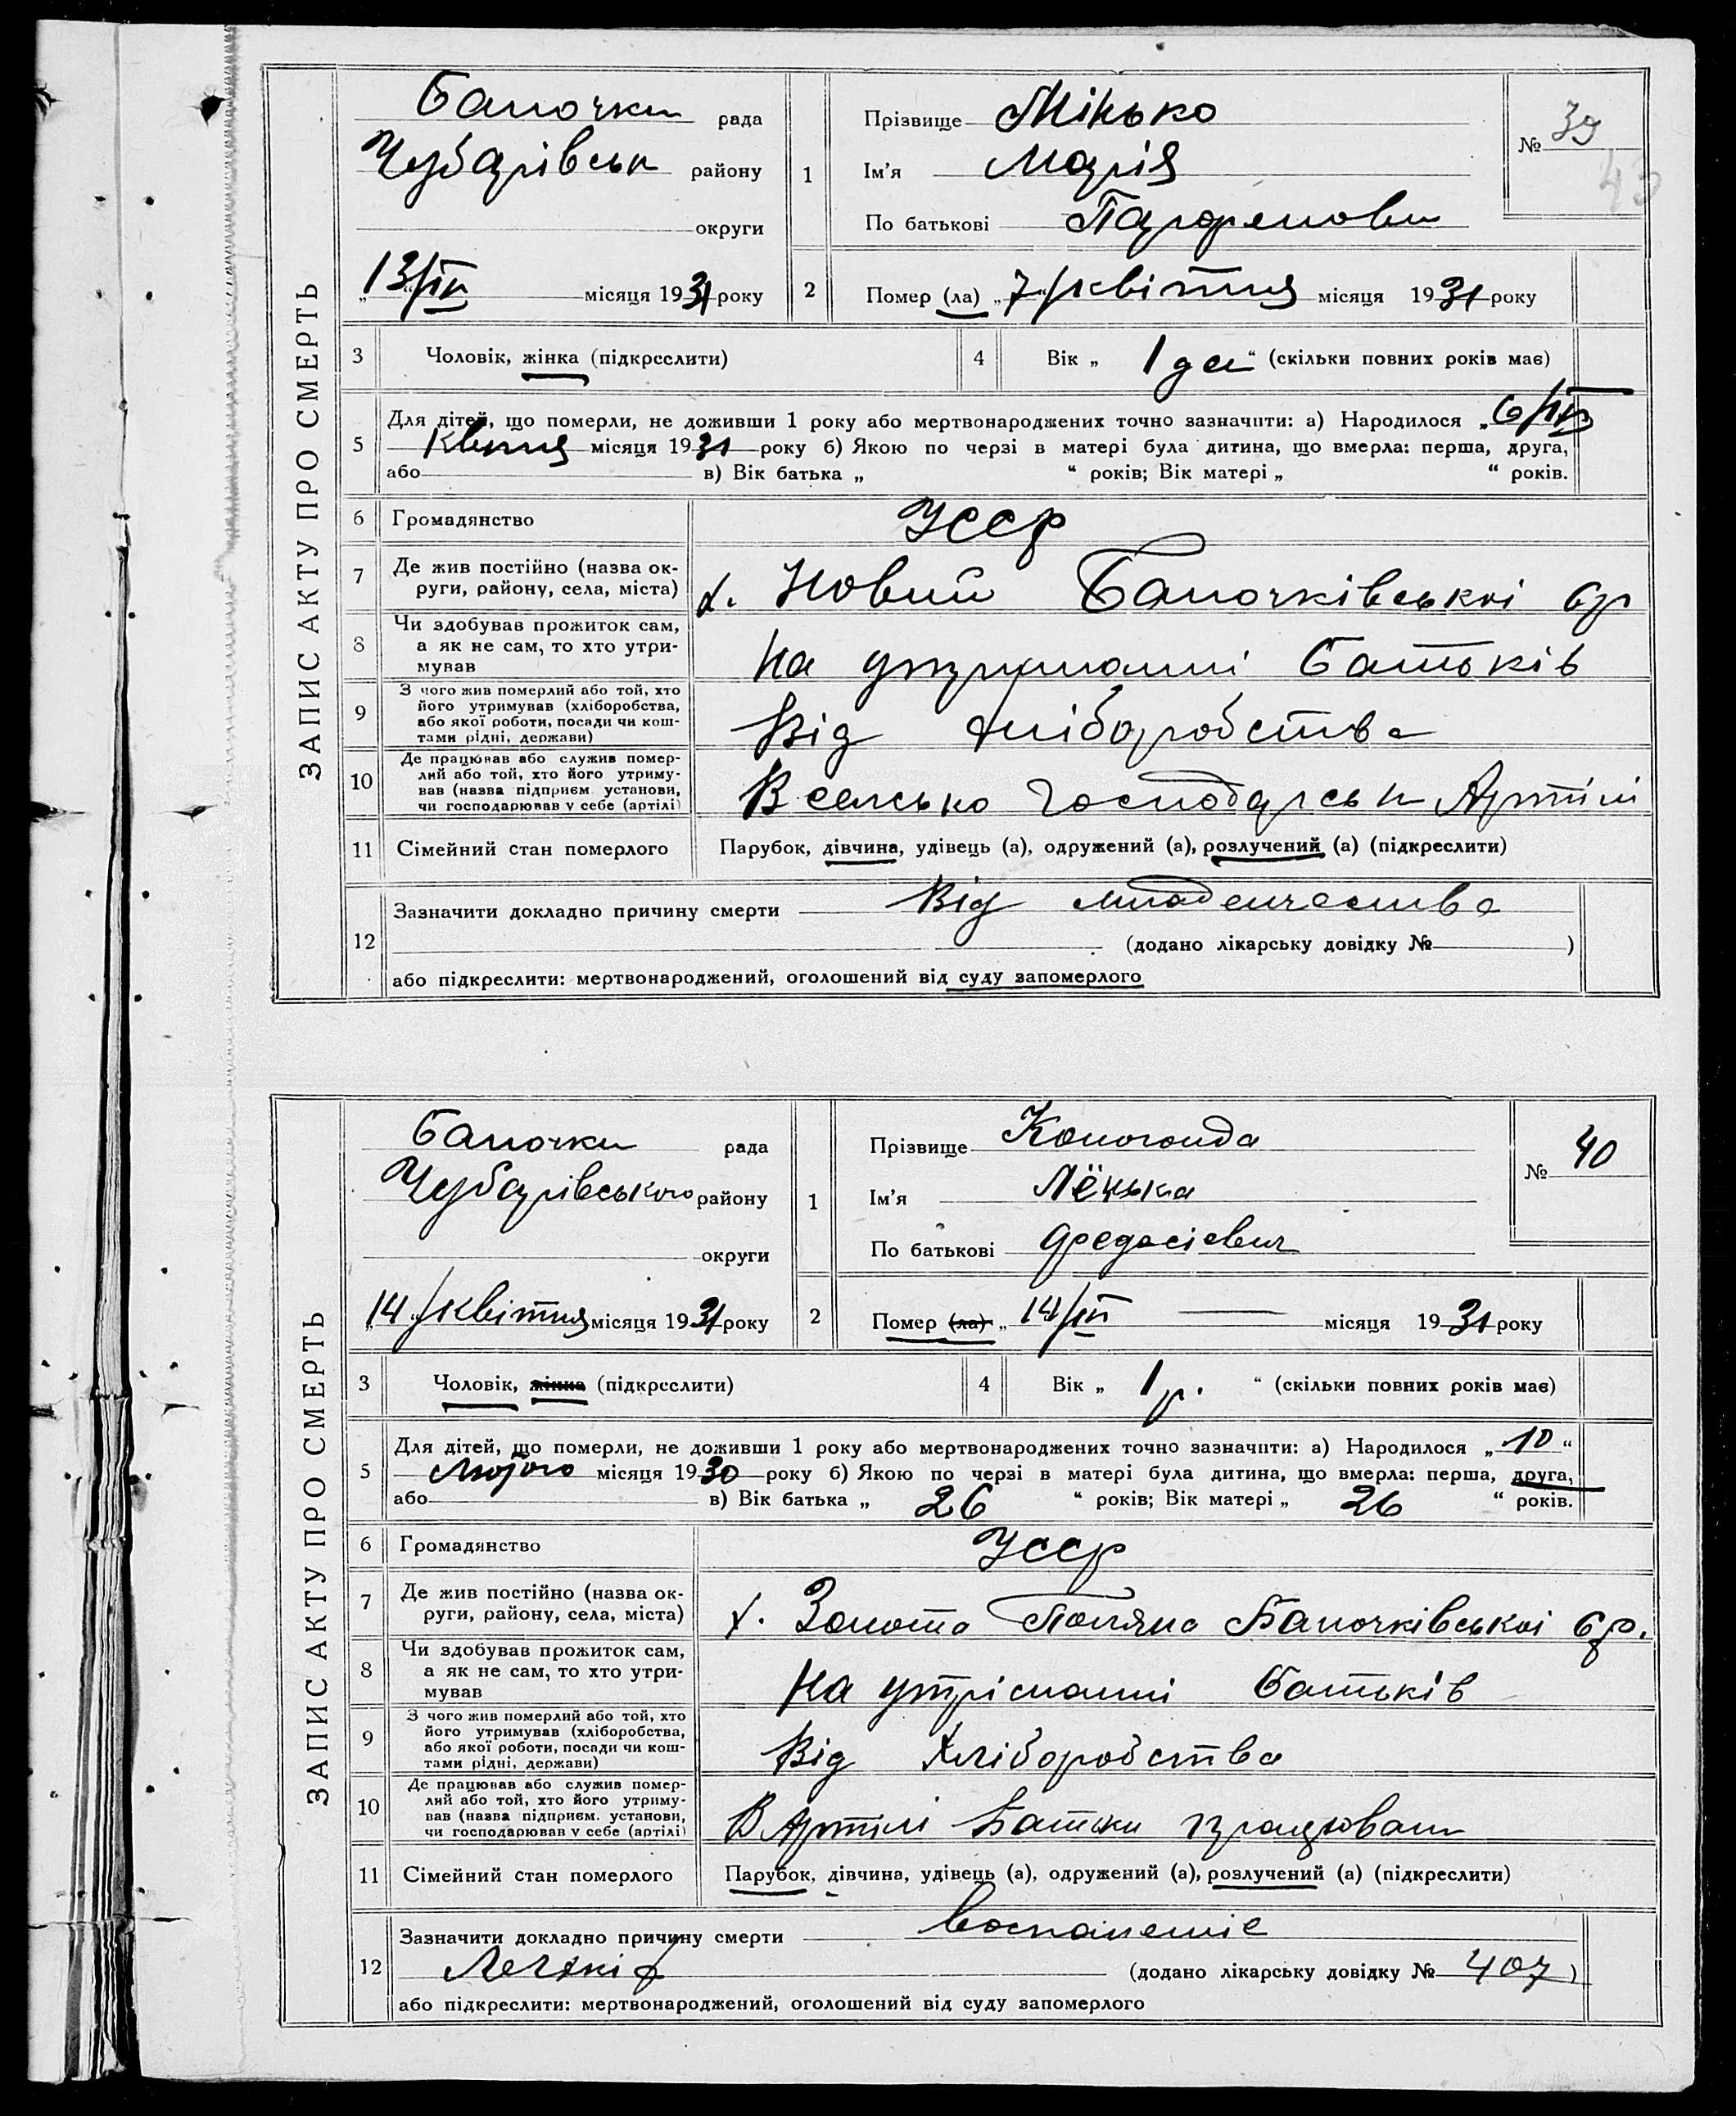 ЗАПИС АКТУ ПРО СМЕРТЬ
Балочки рада
Чубарівськ району
округи
„13/IV“ місяця 1931 року
1
Прізвище Мінько
Ім'я Марія
По батькові Парфенови
№ 39
43
2
Помер (ла) „7“/квітня місяця 1931 року
3 Чоловік, жінка (підкреслити)
4 Вік „ 1 ден “ (скільки повних років має)
5 Для дітей, що померли, не доживши 1 року або мертвонароджених точно зазначити: а) Народилося „6/IV
Квітня місяця 1931 року б) Якою по черзі в матері була дитина, що вмерла: перша, друга,
або в) Вік батька „ “ років; Вік матері „ “ років.
6 Громадянство УССР
7 Де жив постійно (назва ок-
руги, району, села, міста) х. Новий Балочківськкі с/р
8 Чи здобував прожиток сам,
а як не сам, то хто утри-
мував На утриманні батьків
9 З чого жив померлий або той, хто
його утримував (хліборобства,
або якої роботи, посади чи кош-
тами рідні, держави) Від хліборобства
10 Де працював або служив помер-
лий або той, хто його утриму-
вав (назва підприєм. установи,
чи господарював у себе (артілі) В сельсько господарськ Артілі
11 Сімейний стан померлого Парубок, дівчина, удівець (а), одружений (а), розлучений (а) (підкреслити)
12 Зазначити докладно причину смерти Від младенчества
(додано лікарську довідку № )
або підкреслити: мертвонароджений, оголошений від суду запомерлого
ЗАПИС АКТУ ПРО СМЕРТЬ
Балочки рада
Чубарівського району
округи
„14“/квітня місяця 1931 року
1
Прізвище Коногонда
Ім'я Лёнька
По батькові Федосієвич
№ 40
2
Помер (ла) „14/IV місяця 1931 року
3 Чоловік, жінка (підкреслити)
4 Вік „ 1 р. “ (скільки повних років має)
5 Для дітей, що померли, не доживши 1 року або мертвонароджених точно зазначити: а) Народилося „10“
Лютого місяця 1930 року б) Якою по черзі в матері була дитина, що вмерла: перша, друга,
або в) Вік батька „ 26 “ років; Вік матері „ 26 “ років.
6 Громадянство УССР
7 Де жив постійно (назва ок-
руги, району, села, міста) х. Золота Поляна Балочківськкі с/р.
8 Чи здобував прожиток сам,
а як не сам, то хто утри-
мував На утріманні батьків
9 З чого жив померлий або той, хто
його утримував (хліборобства,
або якої роботи, посади чи кош-
тами рідні, держави) Від Хліборобства
10 Де працював або служив помер-
лий або той, хто його утриму-
вав (назва підприєм. установи,
чи господарював у себе (артілі) В Артілі Батьки працювали
11 Сімейний стан померлого Парубок, дівчина, удівець (а), одружений (а), розлучений (а) (підкреслити)
12 Зазначити докладно причину смерти Воспаленіе
Легкіх (додано лікарську довідку № 407)
або підкреслити: мертвонароджений, оголошений від суду запомерлого